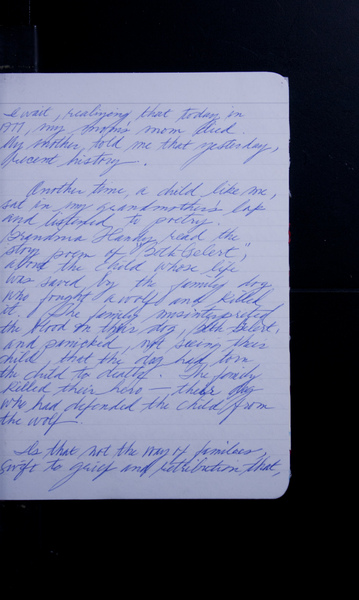 I wait, realizing that today in
1977, my mom's mom died.
My mother, told me that yesterday,
recent history.
Another time, a child like me,
sat in my grandmother's lap
and listened to poetry.
Grandma Handy read the
story poem of "Beth Gelert,"
about the child whose life
was saved by the family dog
who fought a wolf and killed
it. The family misinterpreted
the blood on their dog, Beth Gelert,
and panicked, not seeing their
child, that the dog had torn
the child to death. The family
killed their hero — their dog
who had defended the child from
the wolf.
Is that not the way of families,
swift to grief and retribution that,